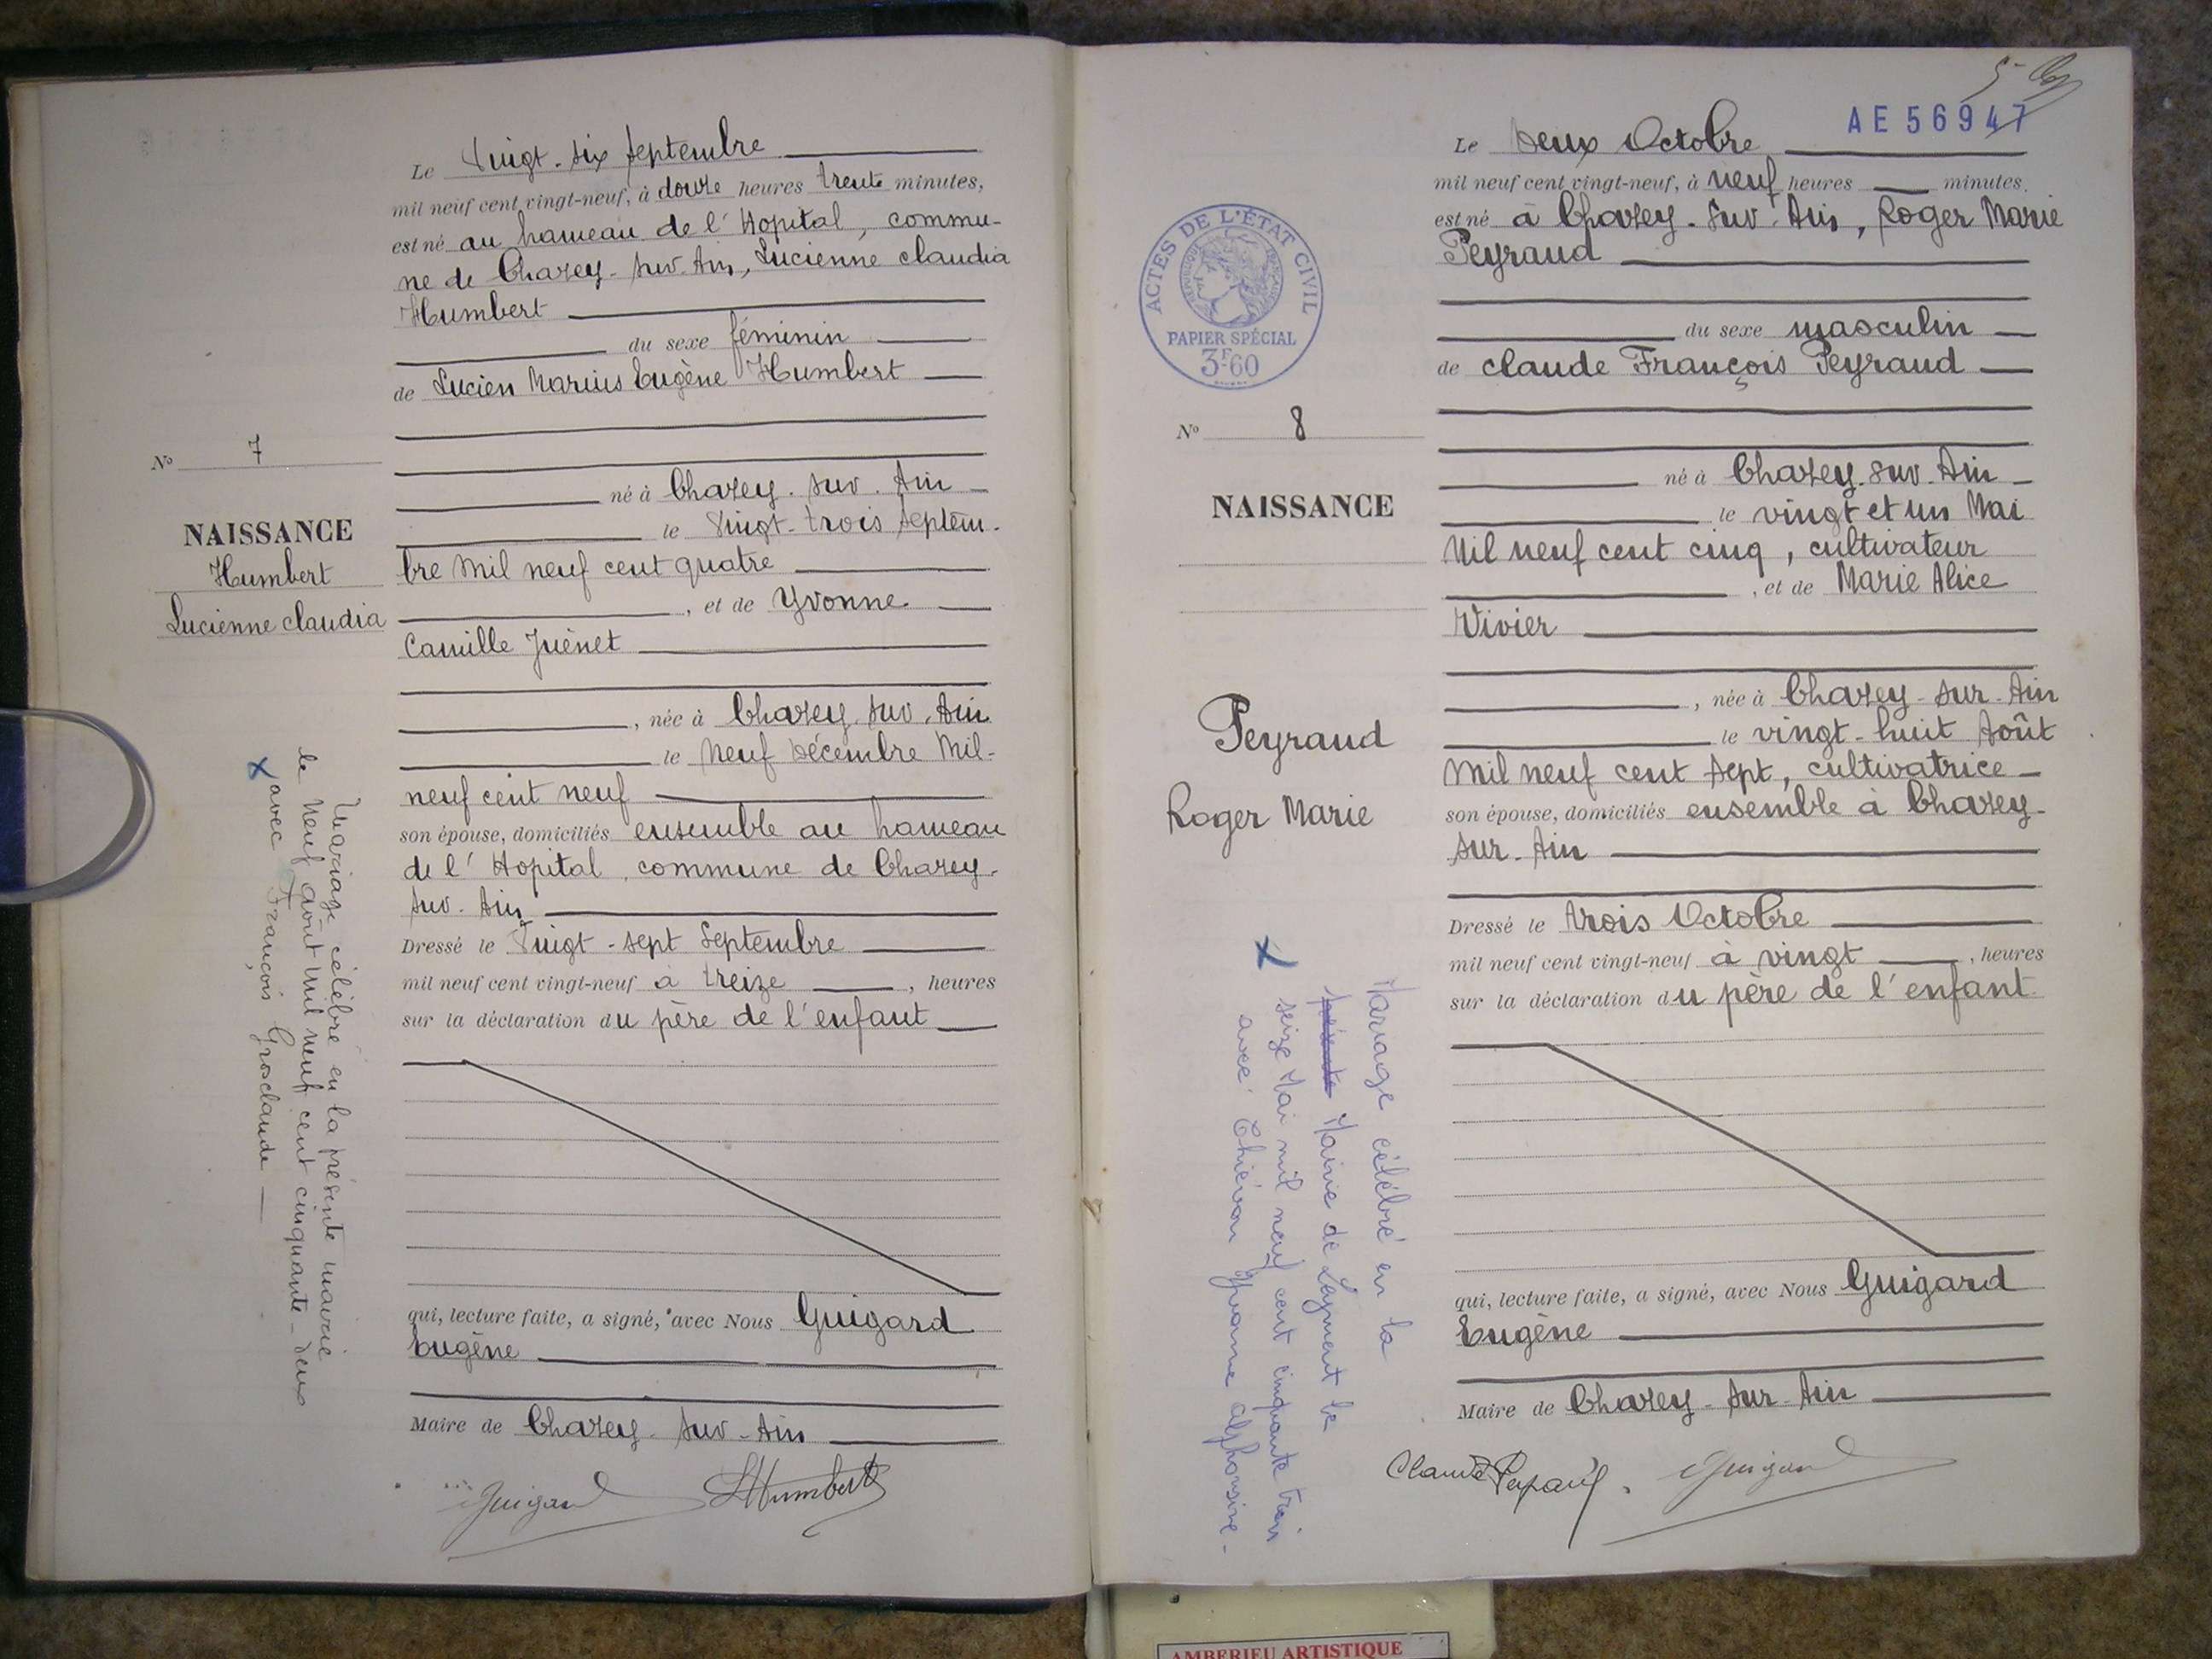 Le Vingt-six septembre
mil neuf cent vingt-neuf, à douze heures trente minutes,
est né au hameau de l'Hopital, commu-
ne de Chazey-sur-Ain, Lucienne claudia
Humbert
du sexe féminin
de Lucien Marius Eugène Humbert
N° 7
né à Chazey-sur-Ain
le Vingt-trois septem-
NAISSANCE
Humbert
Lucienne claudia
bre mil neuf cent quatre
, et de Yvonne
Camille Juénet
, née à Chazey-sur-Ain
le Neuf Décembre Mil-
neuf cent neuf
son épouse, domiciliés ensemble au hameau
de l'Hopital, commune de Chazey-
sur-Ain
Dressé le Vingt-sept Septembre
mil neuf cent vingt-neuf à treize , heures
sur la déclaration du père de l'enfant
Mariage célébré en la présente mairie
le Neuf août Mil neuf cent cinquante-deux
x avec François Grosclaude
qui, lecture faite, a signé, avec Nous Guigard
Eugène
Maire de Chazey-sur-Ain
Guigard
LHumbert
AE 56947
Le Deux Octobre
mil neuf cent vingt-neuf, à neuf heures minutes,
est né à Chazey-sur-Ain, Roger Marie
Peyraud
ACTES DE L'ÉTAT CIVIL
RÉPUBLIQUE FRANÇAISE
PAPIER SPÉCIAL
3F60
du sexe masculin
de claude François Peyraud
N° 8
né à Chazey-sur-Ain
le vingt et un Mai
NAISSANCE
Mil neuf cent cinq, cultivateur
, et de Marie Alice
Vivier
, née à Chazey-sur-Ain
le vingt-huit Août
Mil neuf cent sept, cultivatrice
Peyraud
Roger Marie
son épouse, domiciliés ensemble à Chazey-
sur-Ain
Dressé le trois Octobre
mil neuf cent vingt-neuf à vingt , heures
sur la déclaration du père de l'enfant
x
Mariage célébré en la
présente Mairie de Lagnieu le
seize Mai mil neuf cent cinquante trois
avec Yvonne alphonsine-
qui, lecture faite, a signé, avec Nous Guigard
Eugène
Maire de Chazey-sur-Ain
Claude Peyraud
Guigard
AMBERIEU ARTISTIQUE